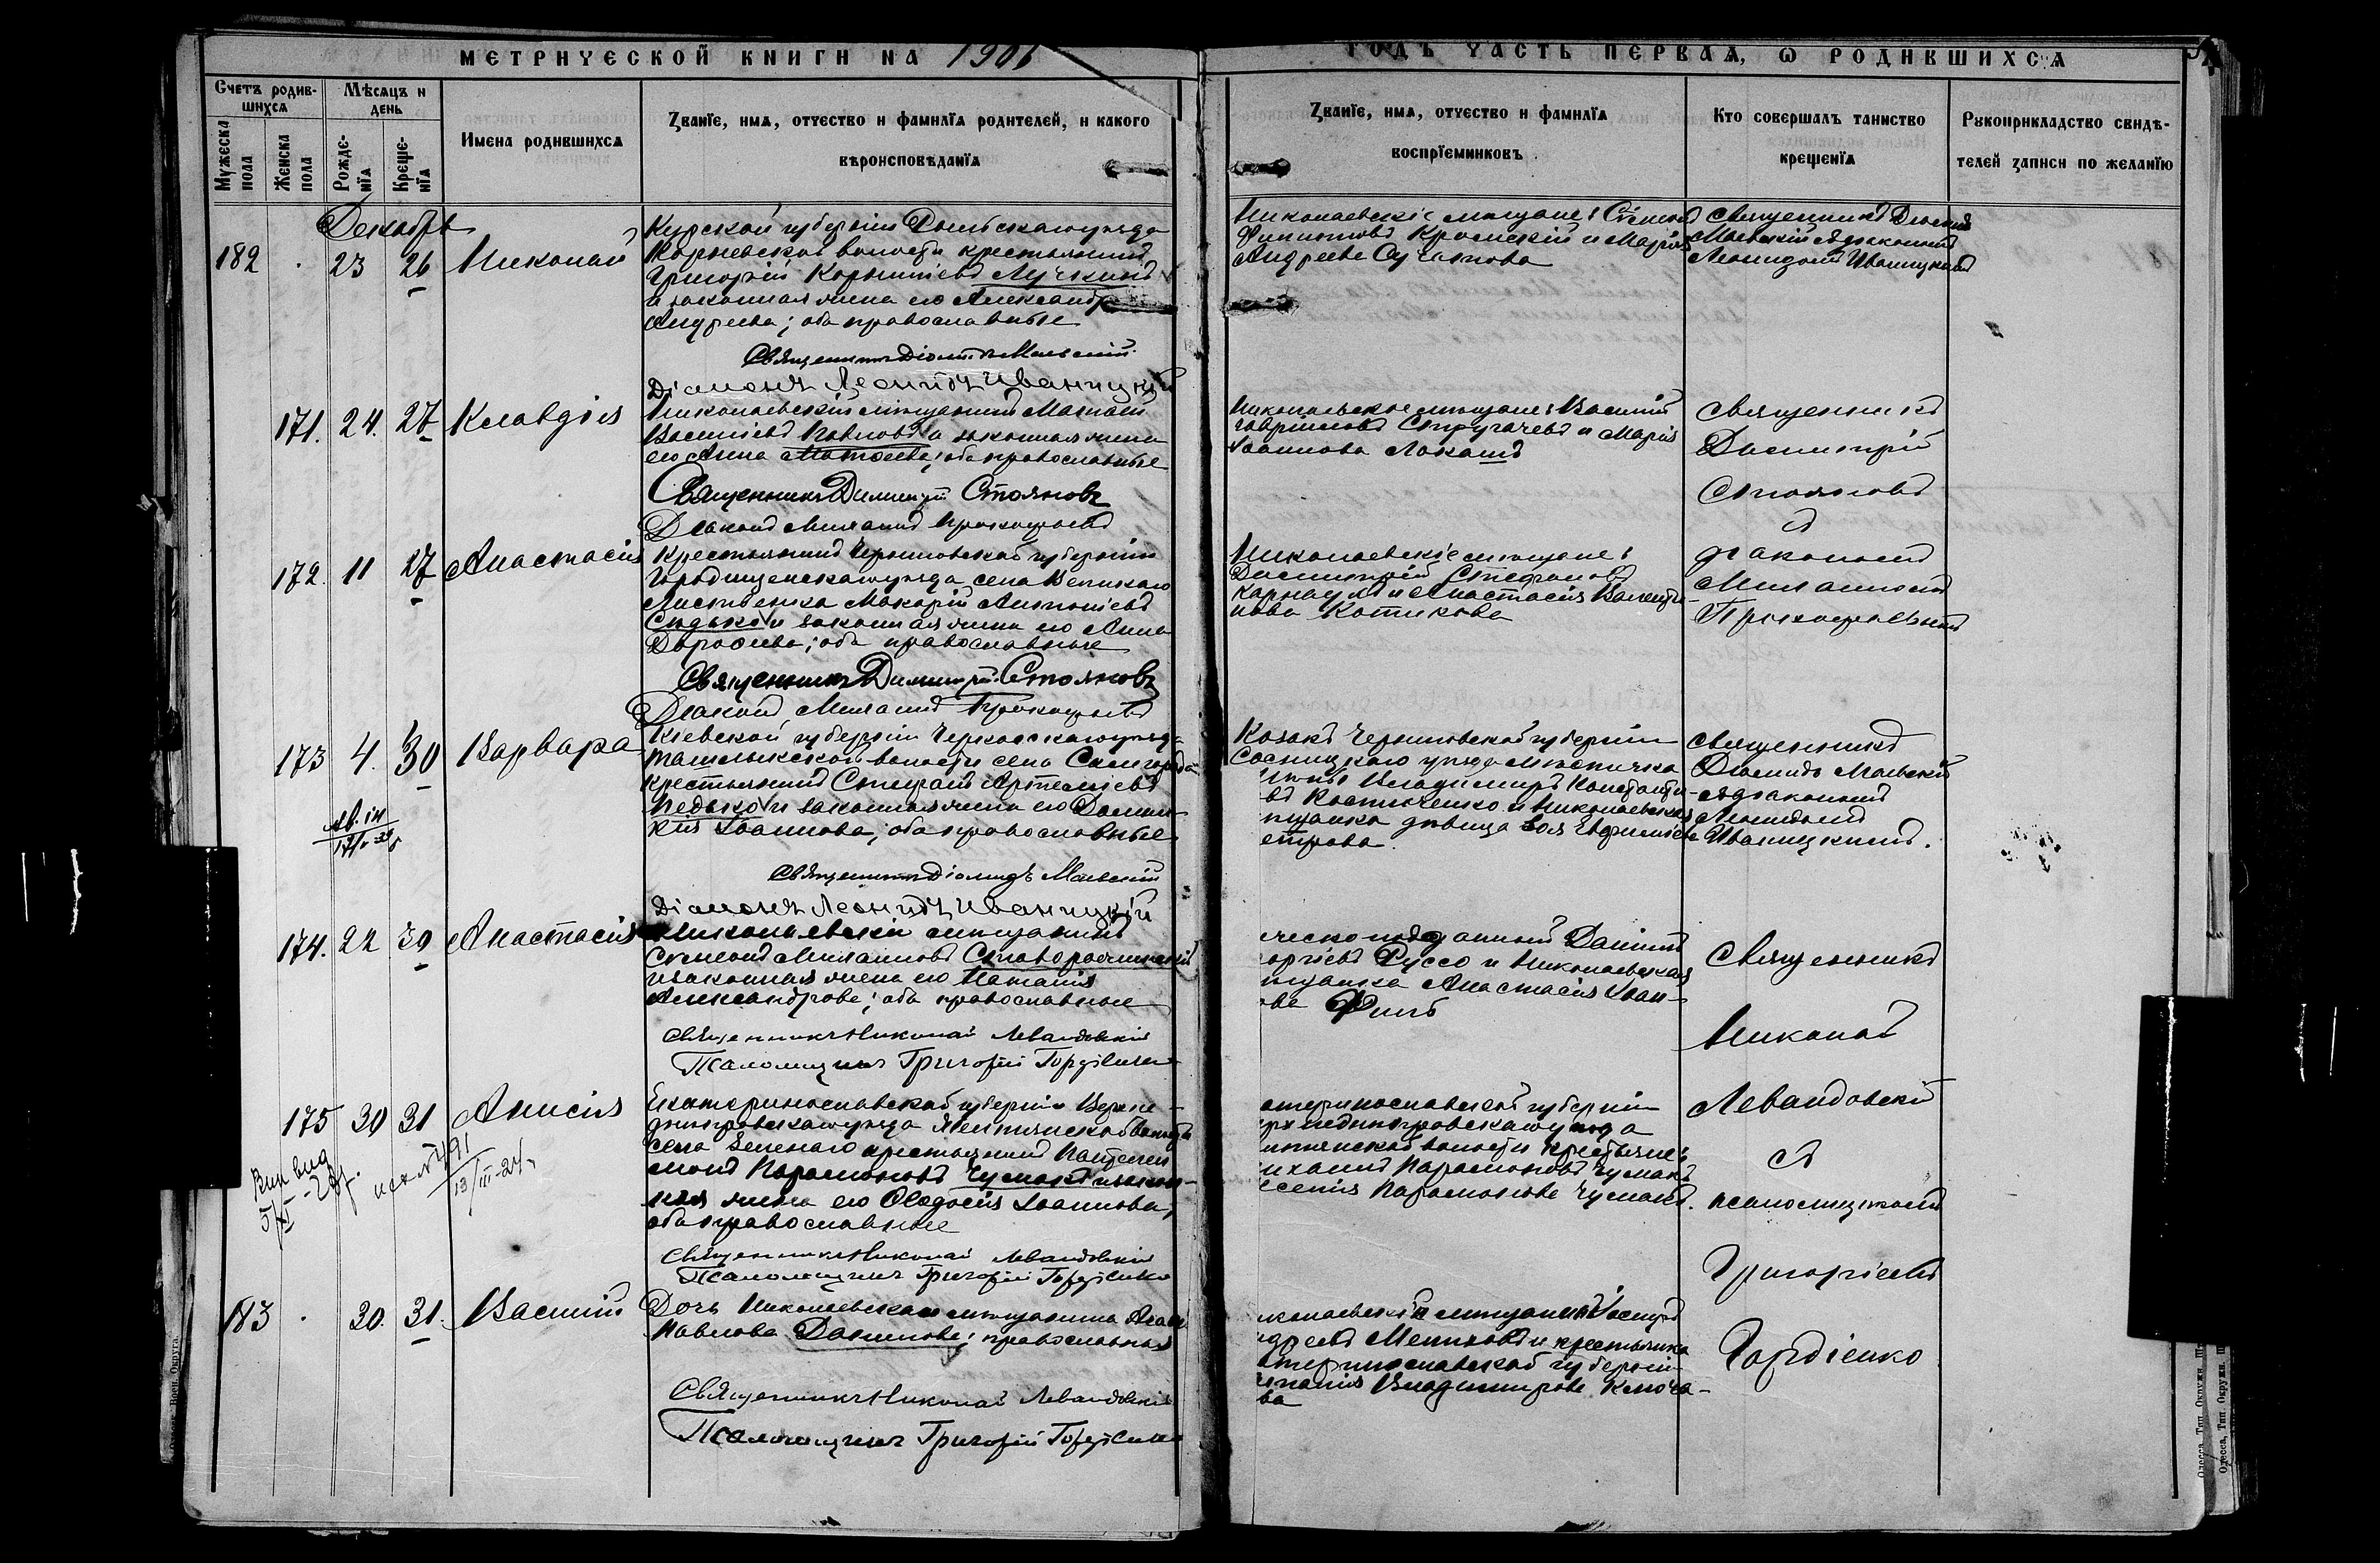 МЕТРИЧЕСКОЙ КНИГИ НА 1906
ГОДЪ ЧАСТЬ ПЕРВАЯ, Ѡ РОДИВШИХСЯ
Счетъ родившихся
Мѣсяцъ и день
Мужеска пола
Женска пола
Рожденїя
Крещенїя
Имена родившихся
Званїе, имя, отчество и фамилїя родителей, и какого
вѣроисповѣданїя
Званїе, имя, отчество и фамилїя
воспрїемниковъ
Кто совершалъ таинство
крещенїя
Рукоприкладство свидѣ-
телей записи по желанїю
Декабрь
182 23 26 Николай
Курской губерніи Рыльскаго уѣзда
волости крестьянинъ
Григорій Корниліевъ Лучкинъ
и законная жена его Александра
Андреева; оба православные
Священникъ Діомидъ Маевскій
Діаконъ Леонидъ Иваницкій
Николаевскіе мѣщане: Симеонъ
Филипповъ Кромскій и Марія
Андреева
Священникъ Діомидъ
Маевскій съ діакономъ
Леонидомъ Иваницкимъ
171. 24. 27 Клавдія
Николаевскій мѣщанинъ Матвѣй
Василіевъ Павловъ и законная жена
его Анна Матѳеева; оба православные
Священникъ Димитрій Стояновъ
Діаконъ Меланій Прокофьевъ
Николаевскіе мѣщане: Василій
Гавріиловъ Стругачевъ и Марія
Іоаннова Лакашъ
Священникъ
Димитрій
Стояновъ
съ
діакономъ
172. 11 27 Анастасія
Крестьянинъ Черниговской губерніи
Городнянскаго уѣзда села Великаго
Листвена Макарій Антоніевъ
Сидько и законная жена его Анна
Дороѳеева; оба православные
Священникъ Димитрій Стояновъ
Николаевскіе мѣщане:
Димитрій Стефановъ
Карнаухъ и Анастасія Валенти-
нова Котикова
173 4. 30 Варвара
Кіевской губерніи Черкасскаго уѣзда
Ташлыкской волости села
крестьянинъ Стефанъ Артеміевъ
Педько и законная жена его Домни-
кія Іоаннова; оба православные
Священникъ Діомидъ Маевскій
Діаконъ Леонидъ Иваницкій
Козакъ Черниговской губерніи
Сосницкаго уѣзда мѣстечка
Владимиръ Константи-
въ Костюченко и Николаевская
щанка дѣвица Зоя Евфиміева
етрова
Священникъ
Діомидъ Маевскій
съ діакономъ
Леонидомъ
Иваницкимъ.
174. 22 30 Анастасія
Николаевскій мѣщанинъ
Симеонъ
и законная жена его Наталія
Александрова; оба православные
Священникъ Николай Левандовскій
Псаломщикъ Григорій Гордіенко
ческоподданный Даніилъ
оргіевъ Руссо и Николаевская
щанка Анастасія Іоан-
ова
Священникъ
Николай
Левандовскій
съ
псаломщикомъ
Григоріемъ
Гордіенко
175 30 31 Анисія
Екатеринославской губерніи Верхне-
днѣпровскаго уѣзда
села Зеленаго крестьянинъ Пантелеи-
монъ Парамоновъ Чумакъ и закон-
ная жена его Ѳеодосія Іоаннова,
оба православные
Священникъ Николай Левандовскій
Псаломщикъ Григорій Гордіенко
атеринославской губерніи
рхнеднѣпровскаго уѣзда
волости крестьяне:
ихаилъ Парамоновъ Чумакъ
ксенія Парамонова Чумакъ.
183 30. 31. Василій
Дочь Николаевскаго мѣщанина
Павлова Данилова; православная
Священникъ Николай Левандовскій
Псаломщикъ Григорій Гордіенко
иколаевскій мѣщанинъ
ндреевъ Мелиховъ и крестьянка
атеринославской губерніи
Владимирова Ключе-
ва